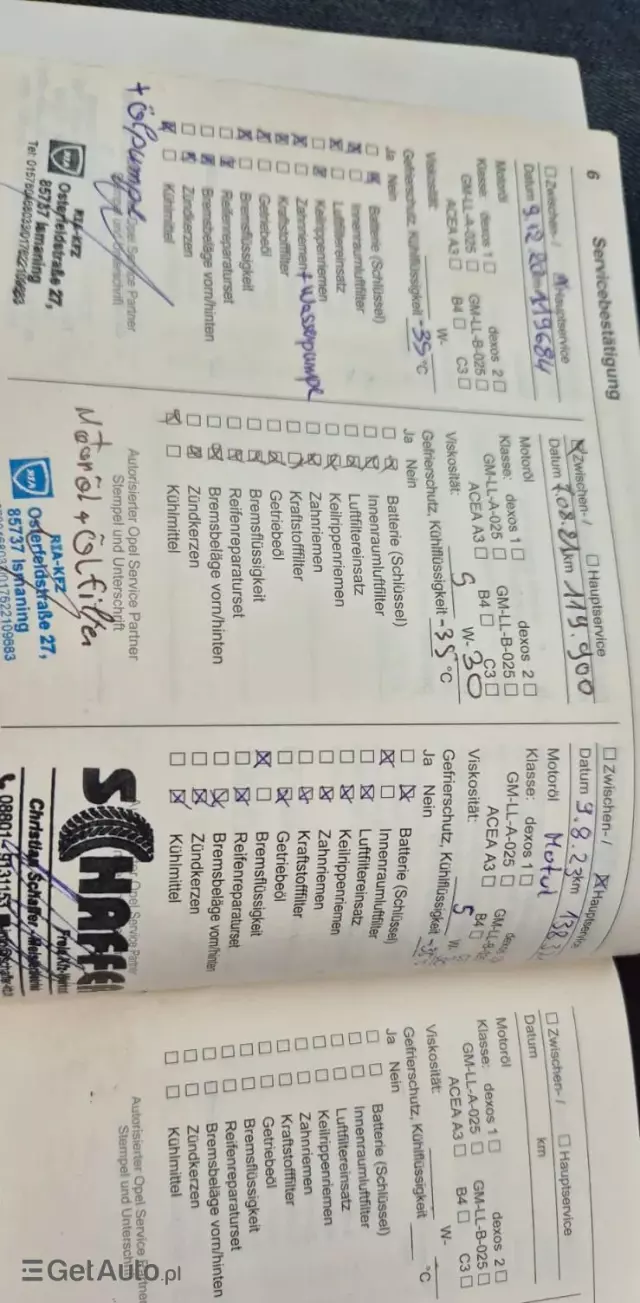 6
Servicebestätigung
Zwischen- / Hauptservice
Datum 9.12.20 km 119684
Motoröl
Klasse: dexos 1 dexos 2
GM-LL-A-025 GM-LL-B-025
ACEA A3 B4 C3
Viskosität: W-
Gefrierschutz, Kühlflüssigkeit -35 °C
Ja Nein
Batterie (Schlüssel)
Innenraumluftfilter
Luftfiltereinsatz
Keilrippenriemen
Zahnriemen + Wasserpumpe
Kraftstofffilter
Getriebeöl
Bremsflüssigkeit
Reifenreparaturset
Bremsbeläge vorn/hinten
Zündkerzen
Kühlmittel
+ Ölpumpe
Opel Service Partner
RIA-KFZ
Osterfeldstraße 27,
85737 Ismaning
Zwischen- / Hauptservice
Datum 7.08.21 km 119.900
Motoröl
Klasse: dexos 1 dexos 2
GM-LL-A-025 GM-LL-B-025
ACEA A3 B4 C3
Viskosität: 5 W-30
Gefrierschutz, Kühlflüssigkeit -35 °C
Ja Nein
Batterie (Schlüssel)
Innenraumluftfilter
Luftfiltereinsatz
Keilrippenriemen
Zahnriemen
Kraftstofffilter
Getriebeöl
Bremsflüssigkeit
Reifenreparaturset
Bremsbeläge vorn/hinten
Zündkerzen
Kühlmittel
Autorisierter Opel Service Partner
Stempel und Unterschrift
Motoröl + Ölfilter
RIA-KFZ
Osterfeldstraße 27,
85737 Ismaning
Zwischen- / Hauptservice
Datum 9.8.23 km
Motoröl Motul
Klasse: dexos 1 dexos
GM-LL-A-025
ACEA A3 B4
Viskosität: 5 W
Gefrierschutz, Kühlflüssigkeit
Ja Nein
Batterie (Schlüssel)
Innenraumluftfilter
Luftfiltereinsatz
Keilrippenriemen
Zahnriemen
Kraftstofffilter
Getriebeöl
Bremsflüssigkeit
Reifenreparaturset
Bremsbeläge vorn/hinten
Zündkerzen
Kühlmittel
Opel Service Partner
SCHAFFE
Christian Schaffer
Zwischen- / Hauptservice
Datum km
Motoröl
Klasse: dexos 1 dexos 2
GM-LL-A-025 GM-LL-B-025
ACEA A3 B4 C3
Viskosität: W-
Gefrierschutz, Kühlflüssigkeit °C
Ja Nein
Batterie (Schlüssel)
Innenraumluftfilter
Luftfiltereinsatz
Keilrippenriemen
Zahnriemen
Kraftstofffilter
Getriebeöl
Bremsflüssigkeit
Reifenreparaturset
Bremsbeläge vorn/hinten
Zündkerzen
Kühlmittel
Autorisierter Opel Service Partner
Stempel und Unterschrift
GetAuto.pl